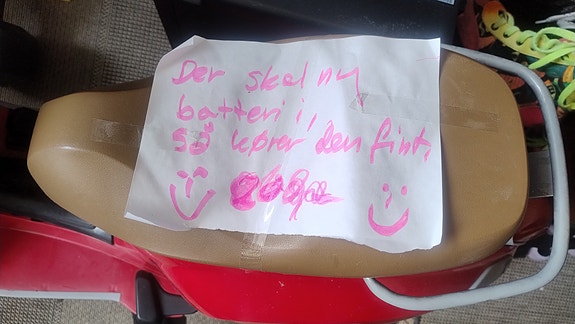 Der skal ny
batteri i,
så kører den fint.